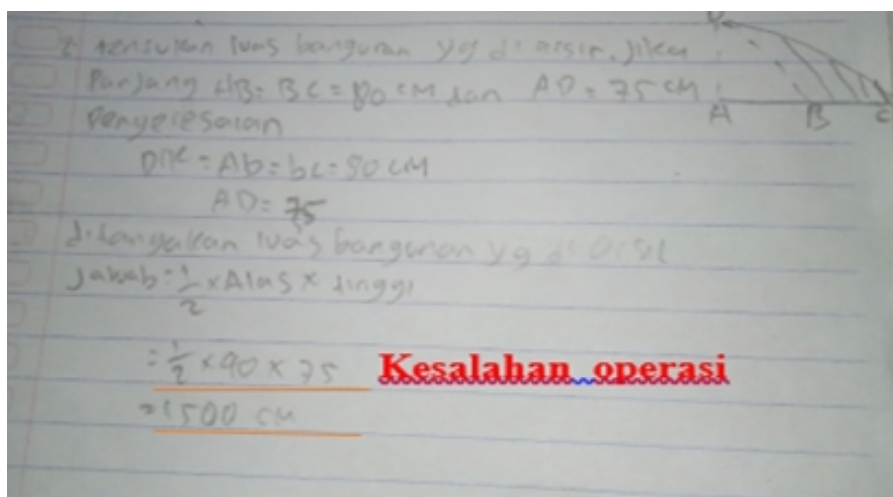 D
tentukan luas bangunan yg di arsir. Jika
Panjang AB = BC = 80 cm dan AD = 75 cm
A B C
Penyelesaian
Dik = Ab = bc = 80 cm
AD = 75
ditanyakan luas bangunan yg di
Jawab = 1/2 x Alas x tinggi
= 1/2 x 40 x 75 Kesalahan operasi
= 1500 cm